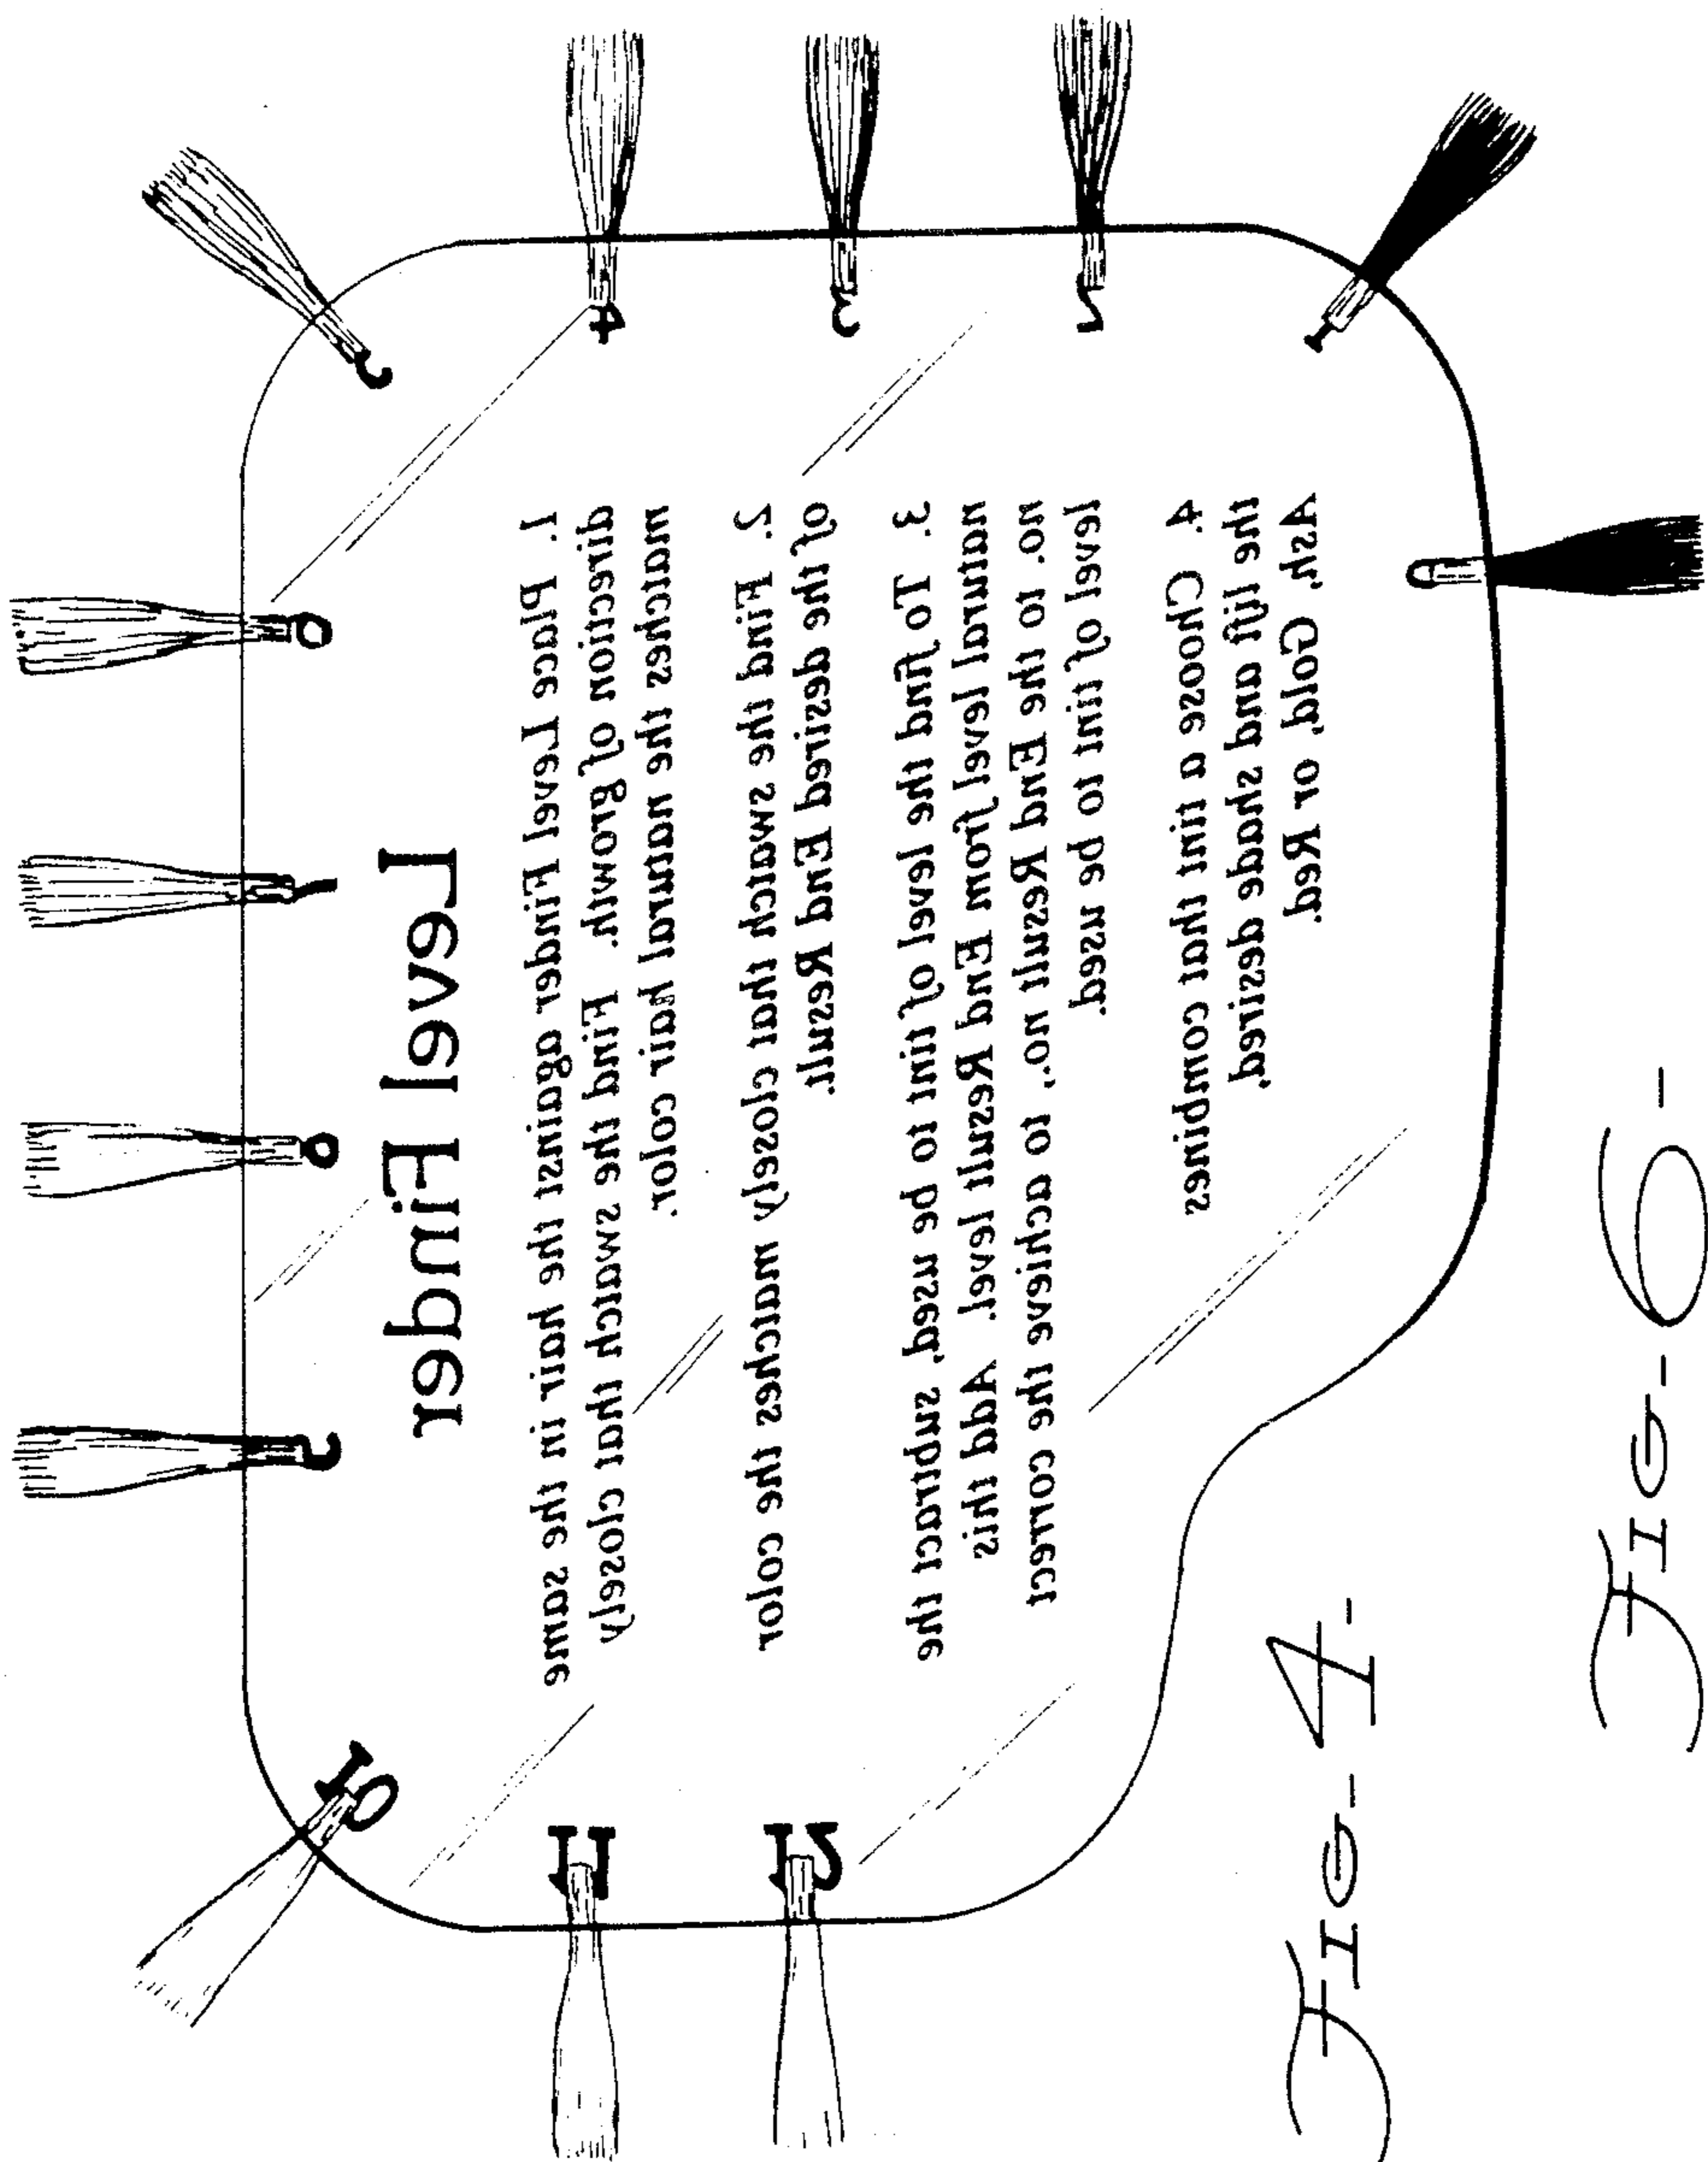 Level Finder
1. Place Level Finder against the hair in the same
direction of growth. Find the swatch that closely
matches the natural hair color.
2. Find the swatch that closely matches the color
of the desired End Result.
3. To find the level of tint to be used, subtract the
natural level from End Result level. Add this
no. to the End Result no., to achieve the correct
level of tint to be used.
4. Choose a tint that combines
the lift and shade desired,
Ash, Gold, or Red.
1
2
3
4
10
11
12
FIG-4-
FIG-6-